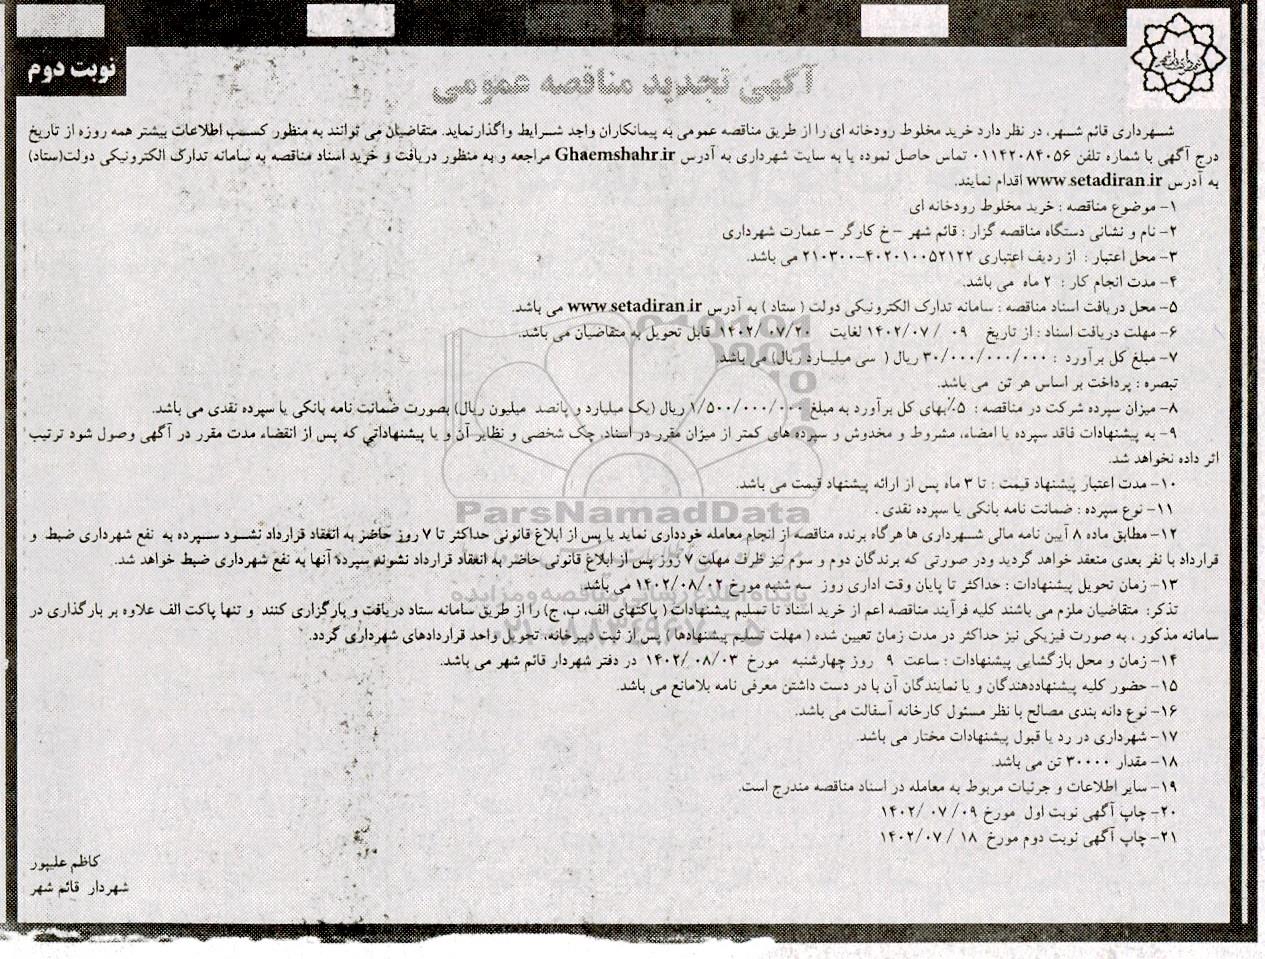 نوبت دوم
آگهی تجدید مناقصه عمومی
شهرداری قائم شهر، در نظر دارد خرید مخلوط رودخانه ای را از طریق مناقصه عمومی به پیمانکاران واجد شرایط واگذارنماید. متقاضیان می توانند به منظور کسب اطلاعات بیشتر همه روزه از تاریخ
درج آگهی با شماره تلفن ۰۱۱۴۲۰۸۴۰۵۶ تماس حاصل نموده یا به سایت شهرداری به آدرس Ghaemshahr.ir مراجعه و به منظور دریافت و خرید اسناد مناقصه به سامانه تدارک الکترونیکی دولت(ستاد)
به آدرس www.setadiran.ir اقدام نمایند.
۱- موضوع مناقصه : خرید مخلوط رودخانه ای
۲- نام و نشانی دستگاه مناقصه گزار : قائم شهر - خ کارگر - عمارت شهرداری
۳- محل اعتبار : از ردیف اعتباری ۴۰۲۰۱۰۰۵۲۱۲۲-۲۱۰۳۰۰ می باشد.
۴- مدت انجام کار : ۲ ماه می باشد.
۵- محل دریافت اسناد مناقصه : سامانه تدارک الکترونیکی دولت ( ستاد ) به آدرس www.setadiran.ir می باشد.
۶- مهلت دریافت اسناد : از تاریخ ۰۹ / ۱۴۰۲/۰۷ لغایت ۱۴۰۲/ ۰۷/۲۰ قابل تحویل به متقاضیان می باشد.
۷- مبلغ کل برآورد : ۳۰/۰۰۰/۰۰۰/۰۰۰ ریال ( سی میلیارد ریال) می باشد.
تبصره : پرداخت بر اساس هر تن می باشد.
۸- میزان سپرده شرکت در مناقصه : ۵٪بهای کل برآورد به مبلغ ۱/۵۰۰/۰۰۰/۰۰۰ ریال (یک میلیارد و پانصد میلیون ریال) بصورت ضمانت نامه بانکی یا سپرده نقدی می باشد.
۹- به پیشنهادات فاقد سپرده یا امضاء، مشروط و مخدوش و سپرده های کمتر از میزان مقرر در اسناد، چک شخصی و نظایر آن و یا پیشنهاداتی که پس از انقضاء مدت مقرر در آگهی وصول شود ترتیب
اثر داده نخواهد شد.
۱۰- مدت اعتبار پیشنهاد قیمت : تا ۳ ماه پس از ارائه پیشنهاد قیمت می باشد.
۱۱- نوع سپرده : ضمانت نامه بانکی یا سپرده نقدی .
ParsNamadData
۱۲- مطابق ماده ۸ آیین نامه مالی شهرداری ها هرگاه برنده مناقصه از انجام معامله خودداری نماید یا پس از ابلاغ قانونی حداکثر تا ۷ روز حاضر به انعقاد قرارداد نشود سپرده به نفع شهرداری ضبط و
قرارداد با نفر بعدی منعقد خواهد گردید ودر صورتی که برندگان دوم و سوم نیز ظرف مهلت ۷ روز پس از ابلاغ قانونی حاضر به انعقاد قرارداد نشوند سپرده آنها به نفع شهرداری ضبط خواهد شد.
۱۳- زمان تحویل پیشنهادات : حداکثر تا پایان وقت اداری روز سه شنبه مورخ ۱۴۰۲/۰۸/۰۲ می باشد
پایگاه اطلاع رسانی مناقصه و مزایده
تذکر: متقاضیان ملزم می باشند کلیه فرآیند مناقصه اعم از خرید اسناد تا تسلیم پیشنهادات ( پاکتهای الف، ب، ج) را از طریق سامانه ستاد دریافت و بارگزاری کنند و تنها پاکت الف علاوه بر بارگذاری در
سامانه مذکور ، به صورت فیزیکی نیز حداکثر در مدت زمان تعیین شده ( مهلت تسلیم پیشنهادها ) پس از ثبت دبیرخانه، تحویل واحد قراردادهای شهرداری گردد.
۱۴- زمان و محل بازگشایی پیشنهادات : ساعت ۹ روز چهارشنبه مورخ ۱۴۰۲/ ۰۸/۰۳ در دفتر شهردار قائم شهر می باشد.
۱۵- حضور کلیه پیشنهاددهندگان و یا نمایندگان آن با در دست داشتن معرفی نامه بلامانع می باشد.
۱۶- نوع دانه بندی مصالح با نظر مسئول کارخانه آسفالت می باشد.
۱۷- شهرداری در رد یا قبول پیشنهادات مختار می باشد.
۱۸- مقدار ۳۰۰۰۰ تن می باشد.
۱۹- سایر اطلاعات و جزئیات مربوط به معامله در اسناد مناقصه مندرج است.
۲۰- چاپ آگهی نوبت اول مورخ ۰۹/ ۰۷ /۱۴۰۲
۲۱- چاپ آگهی نوبت دوم مورخ ۱۸ / ۱۴۰۲/۰۷
کاظم علیپور
شهردار قائم شهر